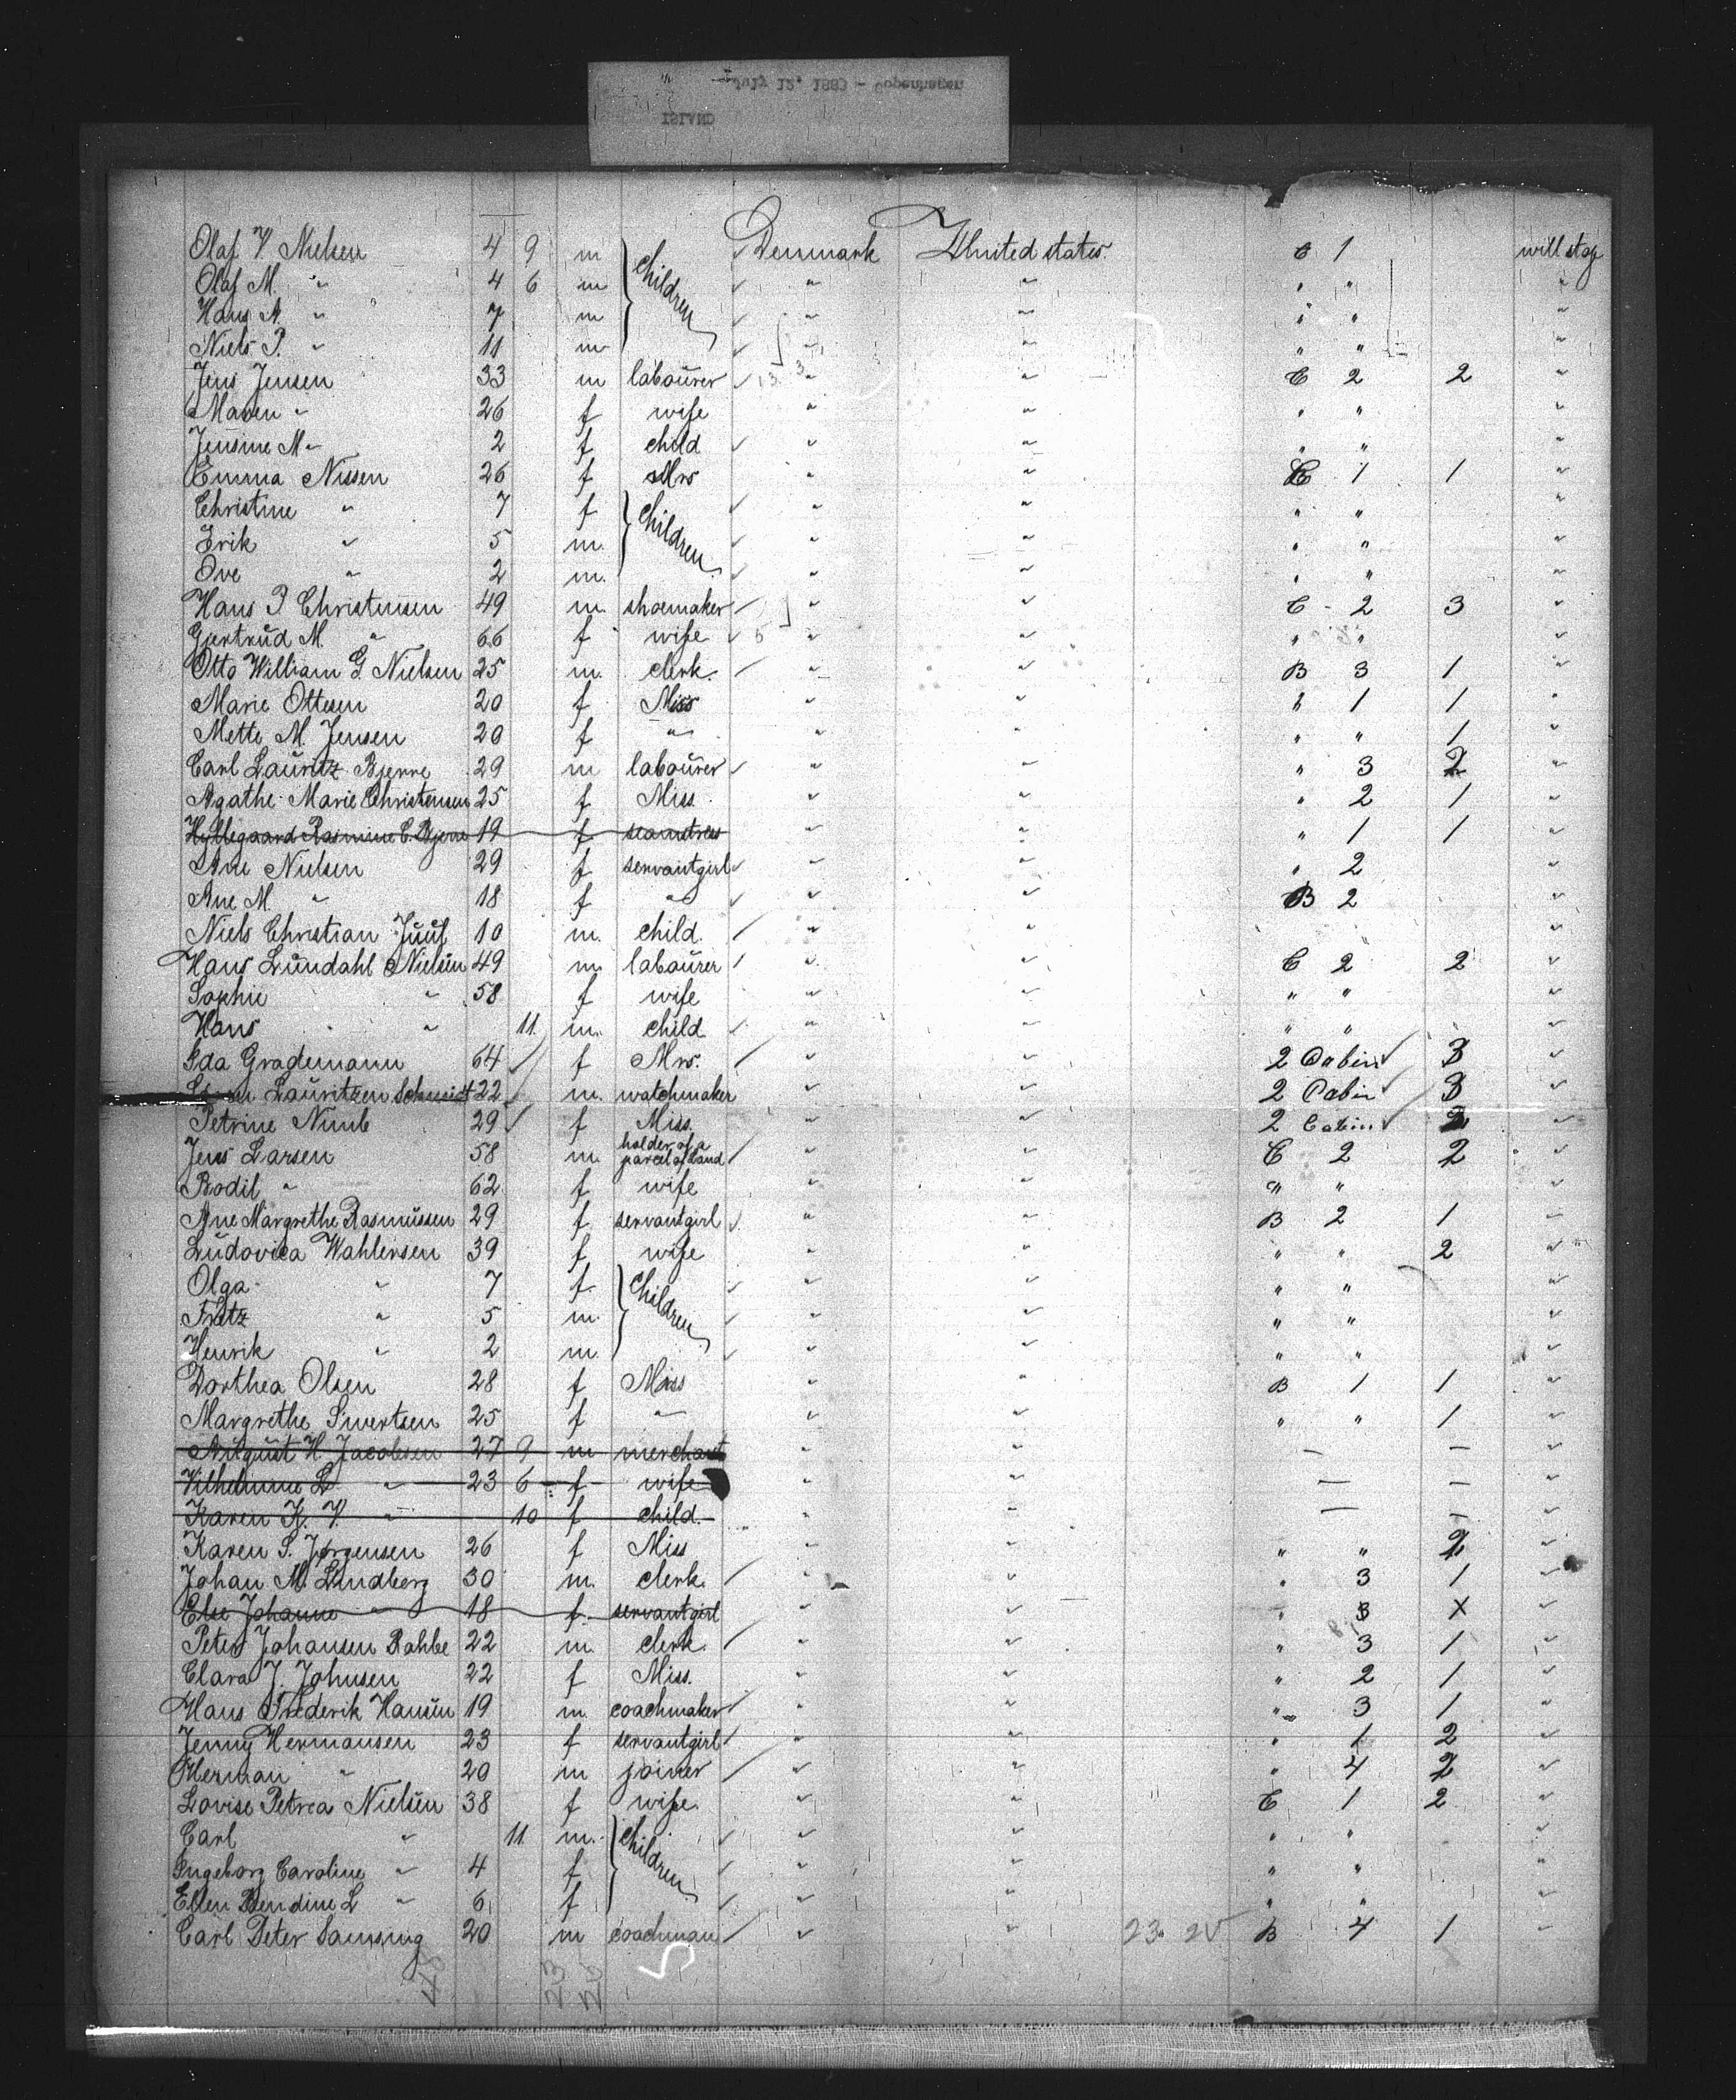 July 12, 1883 - Copenhagen
ISLAND
Olaf V. Nielsen 4 9 m children Denmark United states. C 1 will stay
Olaf M. " 4 6 m " " " " "
Hans A. " 7 m " " " " "
Niels P. " 11 m " " " " "
Jens Jensen 33 m labourer " " C 2 2 "
Maren " 26 f wife " " " " "
Jensine M " 2 f child " " " " "
Emma Nissen 26 f Mrs " " C 1 1 "
Christine " 7 f children " " " " "
Erik " 5 m. " " " " "
Ove " 2 m. " " " " "
Hans P Christensen 49 m. shoemaker " " C 2 3 "
Gjertrud M. " 66 f wife " " " " "
Otto William G. Nielsen 25 m. clerk. " " B 3 1 "
Marie Ottesen 20 f Miss " " " 1 1 "
Mette M. Jensen 20 f " " " " " 1 "
Carl Lauritz Bjerre 29 m labourer " " " 3 2 "
Agathe Marie Christensen 25 f Miss. " " " 2 1 "
Hyllegaard Rasmine C. Bjerre 19 f seamstress " " " 1 1 "
Ane Nielsen 29 f servantgirl " " " 2 "
Ane M. " 18 f " " " B 2 "
Niels Christian Juul 10 m. child. " " "
Hans Lundahl Nielsen 49 m. labourer " " C 2 2 "
Sophie " 58 f wife " " " " "
Hans " 11 m. child " " " " "
Ida Grademann 64 f Mrs. " " 2 Cabin 3 "
Lauritzen Schmidt 22 m. watchmaker " " 2 Cabin 3 "
Petrine 29 f Miss. " " 2 Cabin 2 "
Jens Larsen 58 m. holder of a parcel of land " " C 2 2 "
Bodil " 62 f wife " " " " "
Ane Margrethe Rasmussen 29 f servantgirl " " B 2 1 "
Ludovica Wahlensen 39 f wife " " " " 2 "
Olga " 7 f. children " " " " "
Fritz " 5 m. " " " " "
Henrik " 2 m. " " " " "
Dorthea Olsen 28 f Miss " " B 1 1 "
Margrethe Siwertsen 25 f " " " " " 1 "
August H. Jacobsen 27 9 m merchant " " — — "
Vilhelmine L " 23 6 f wife " " — — "
Karen K. V. " 10 f child. " " — — "
Karen S. Jørgensen 26 f Miss " " " " 2 "
Johan M. Lindberg 30 m. clerk. " " " 3 1 "
Else Johanne " 18 f servantgirl " " " 3 X "
Peter Johansen Rahbe 22 m. clerk. " " " 3 1 "
Clara J. Johnsen 22 f Miss. " " " 2 1 "
Hans Frederik Hansen 19 m. coachmaker " " " 3 1 "
Jenny Hermansen 23 f servantgirl " " " 1 2 "
Herman " 20 m joiner " " " 4 2 "
Lovise Petrea Nielsen 38 f wife. " " C 1 2 "
Carl " 11 m. children " " " " "
Ingeborg Caroline " 4 f " " " " "
Ellen Bendine L " 6 f " " " " "
Carl Peter Samsing 20 m coachman " " 23 20 B 4 1 "
48 23 20